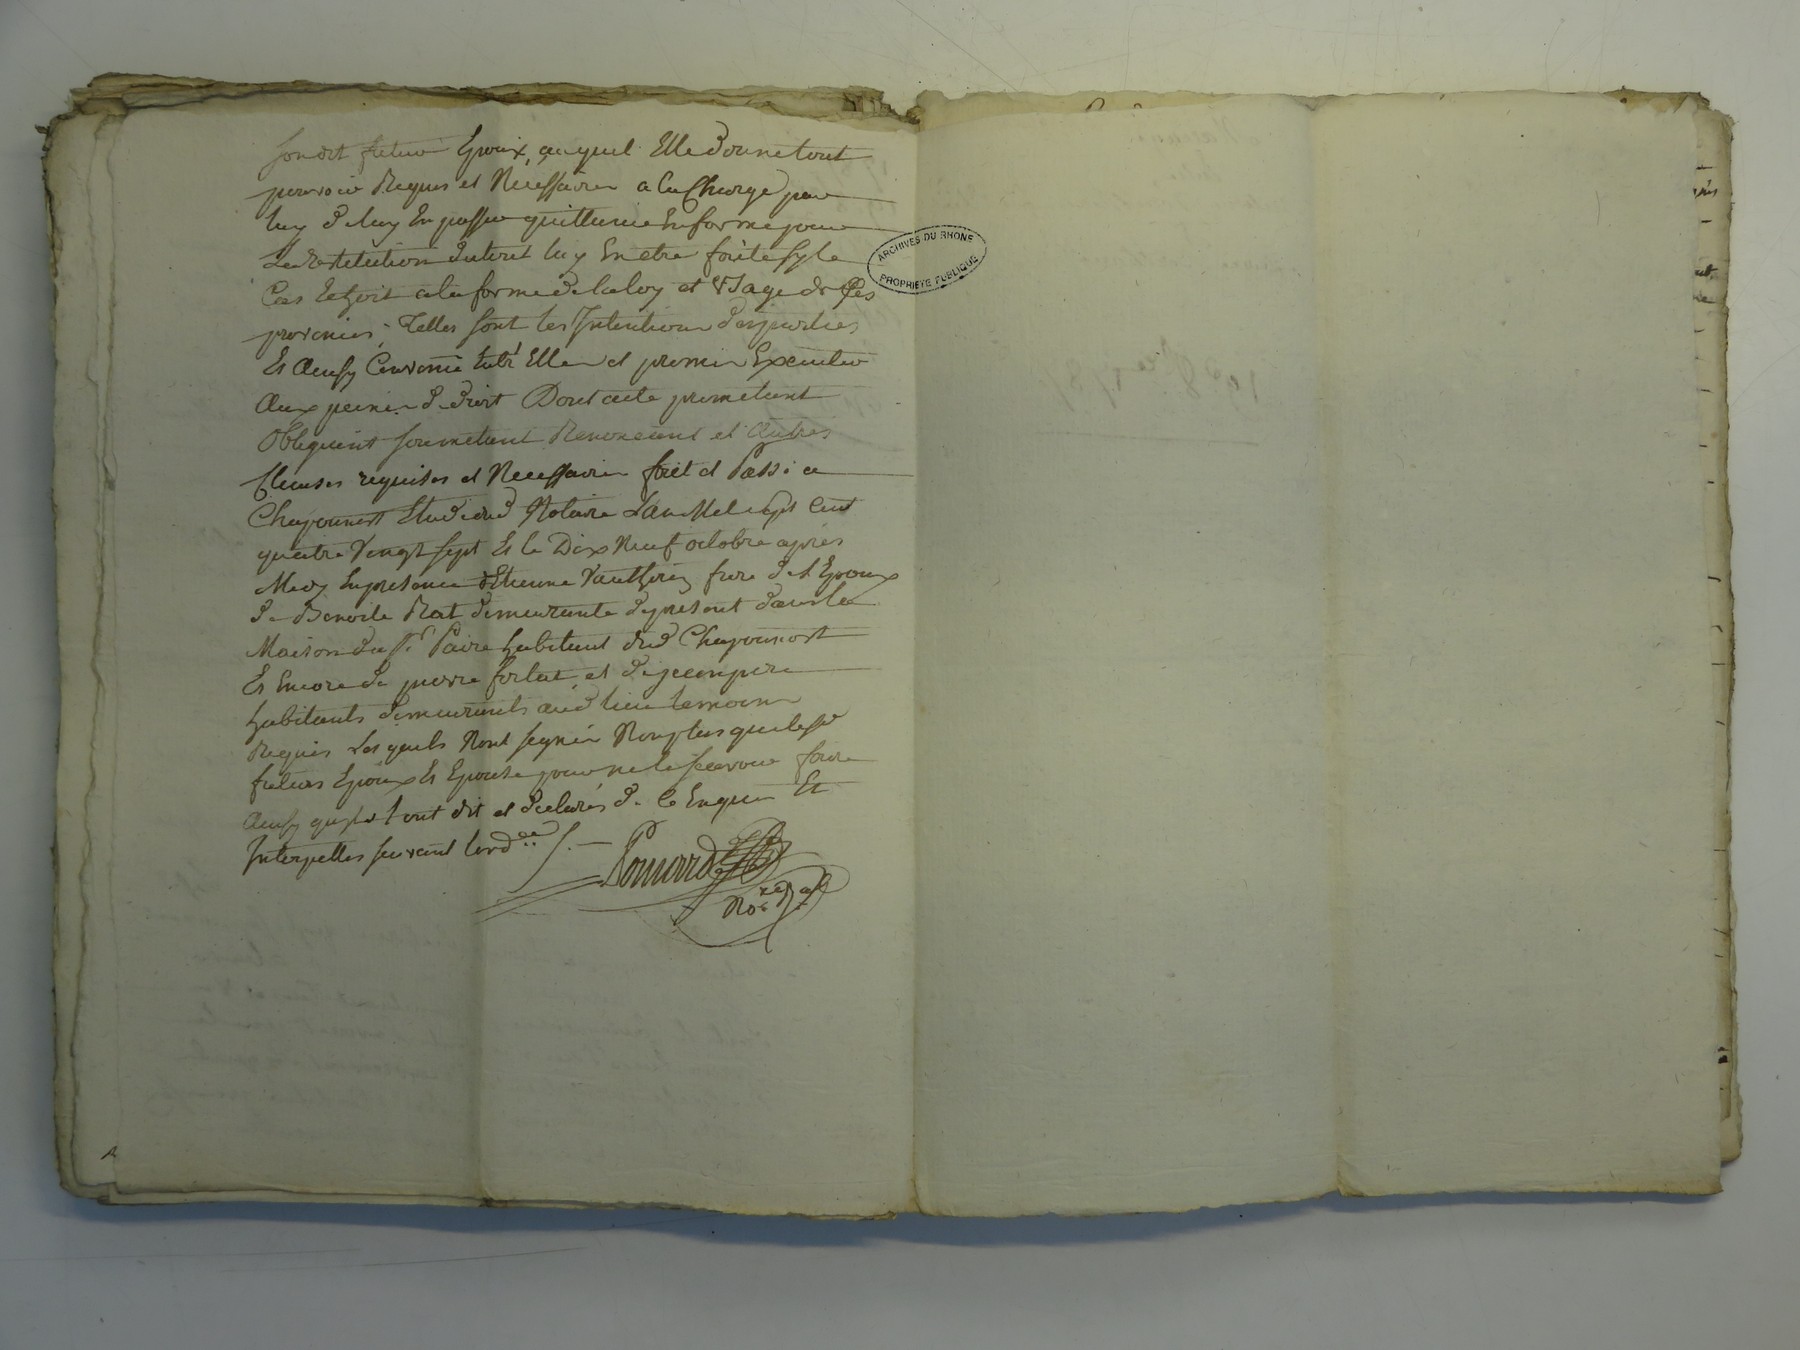 sondit futur Epoux, auquel Elle donne tout
pouvoir Requis et Necessaire a la Charge par
luy de luy En passer quittance En forme pour
La restitution duterit luy En etre faite sy le
Cas Echoit a la forme de la loy et Usage de Ces
provinces; Telles sont les Intentions des parties
Et Ainsy Convenu Entr'Elles et promis Executer
Aux peines de droit Dont acte prometant
Obligeant soumetant Renonceant et Autres
Clauses requises et Necessaires fait et Passé a
Chaponnost Etude dud Notaire L'an Mil sept Cent
quatre Vingt sept Et le Dix Neuf octobre apres
Midy En presence d'Etienne frere de l'Epoux
de Benoite Rat demeurante de present dans la
Maison du Sr Paire habitant dud Chaponnost
Et Encore de pierre et de
habitants demeurants aud lieu temoins
Requis Les quels N'ont signés Non plus que lesd
futurs Epoux Et Epouse pour ne le sçavoir faire
Ainsy qu'ils l'ont dit et declarés de Ce Enquis Et
Interpellés suivant l'ord.ce
Ponard
No.re Ral
ARCHIVES DU RHONE
PROPRIETE PUBLIQUE